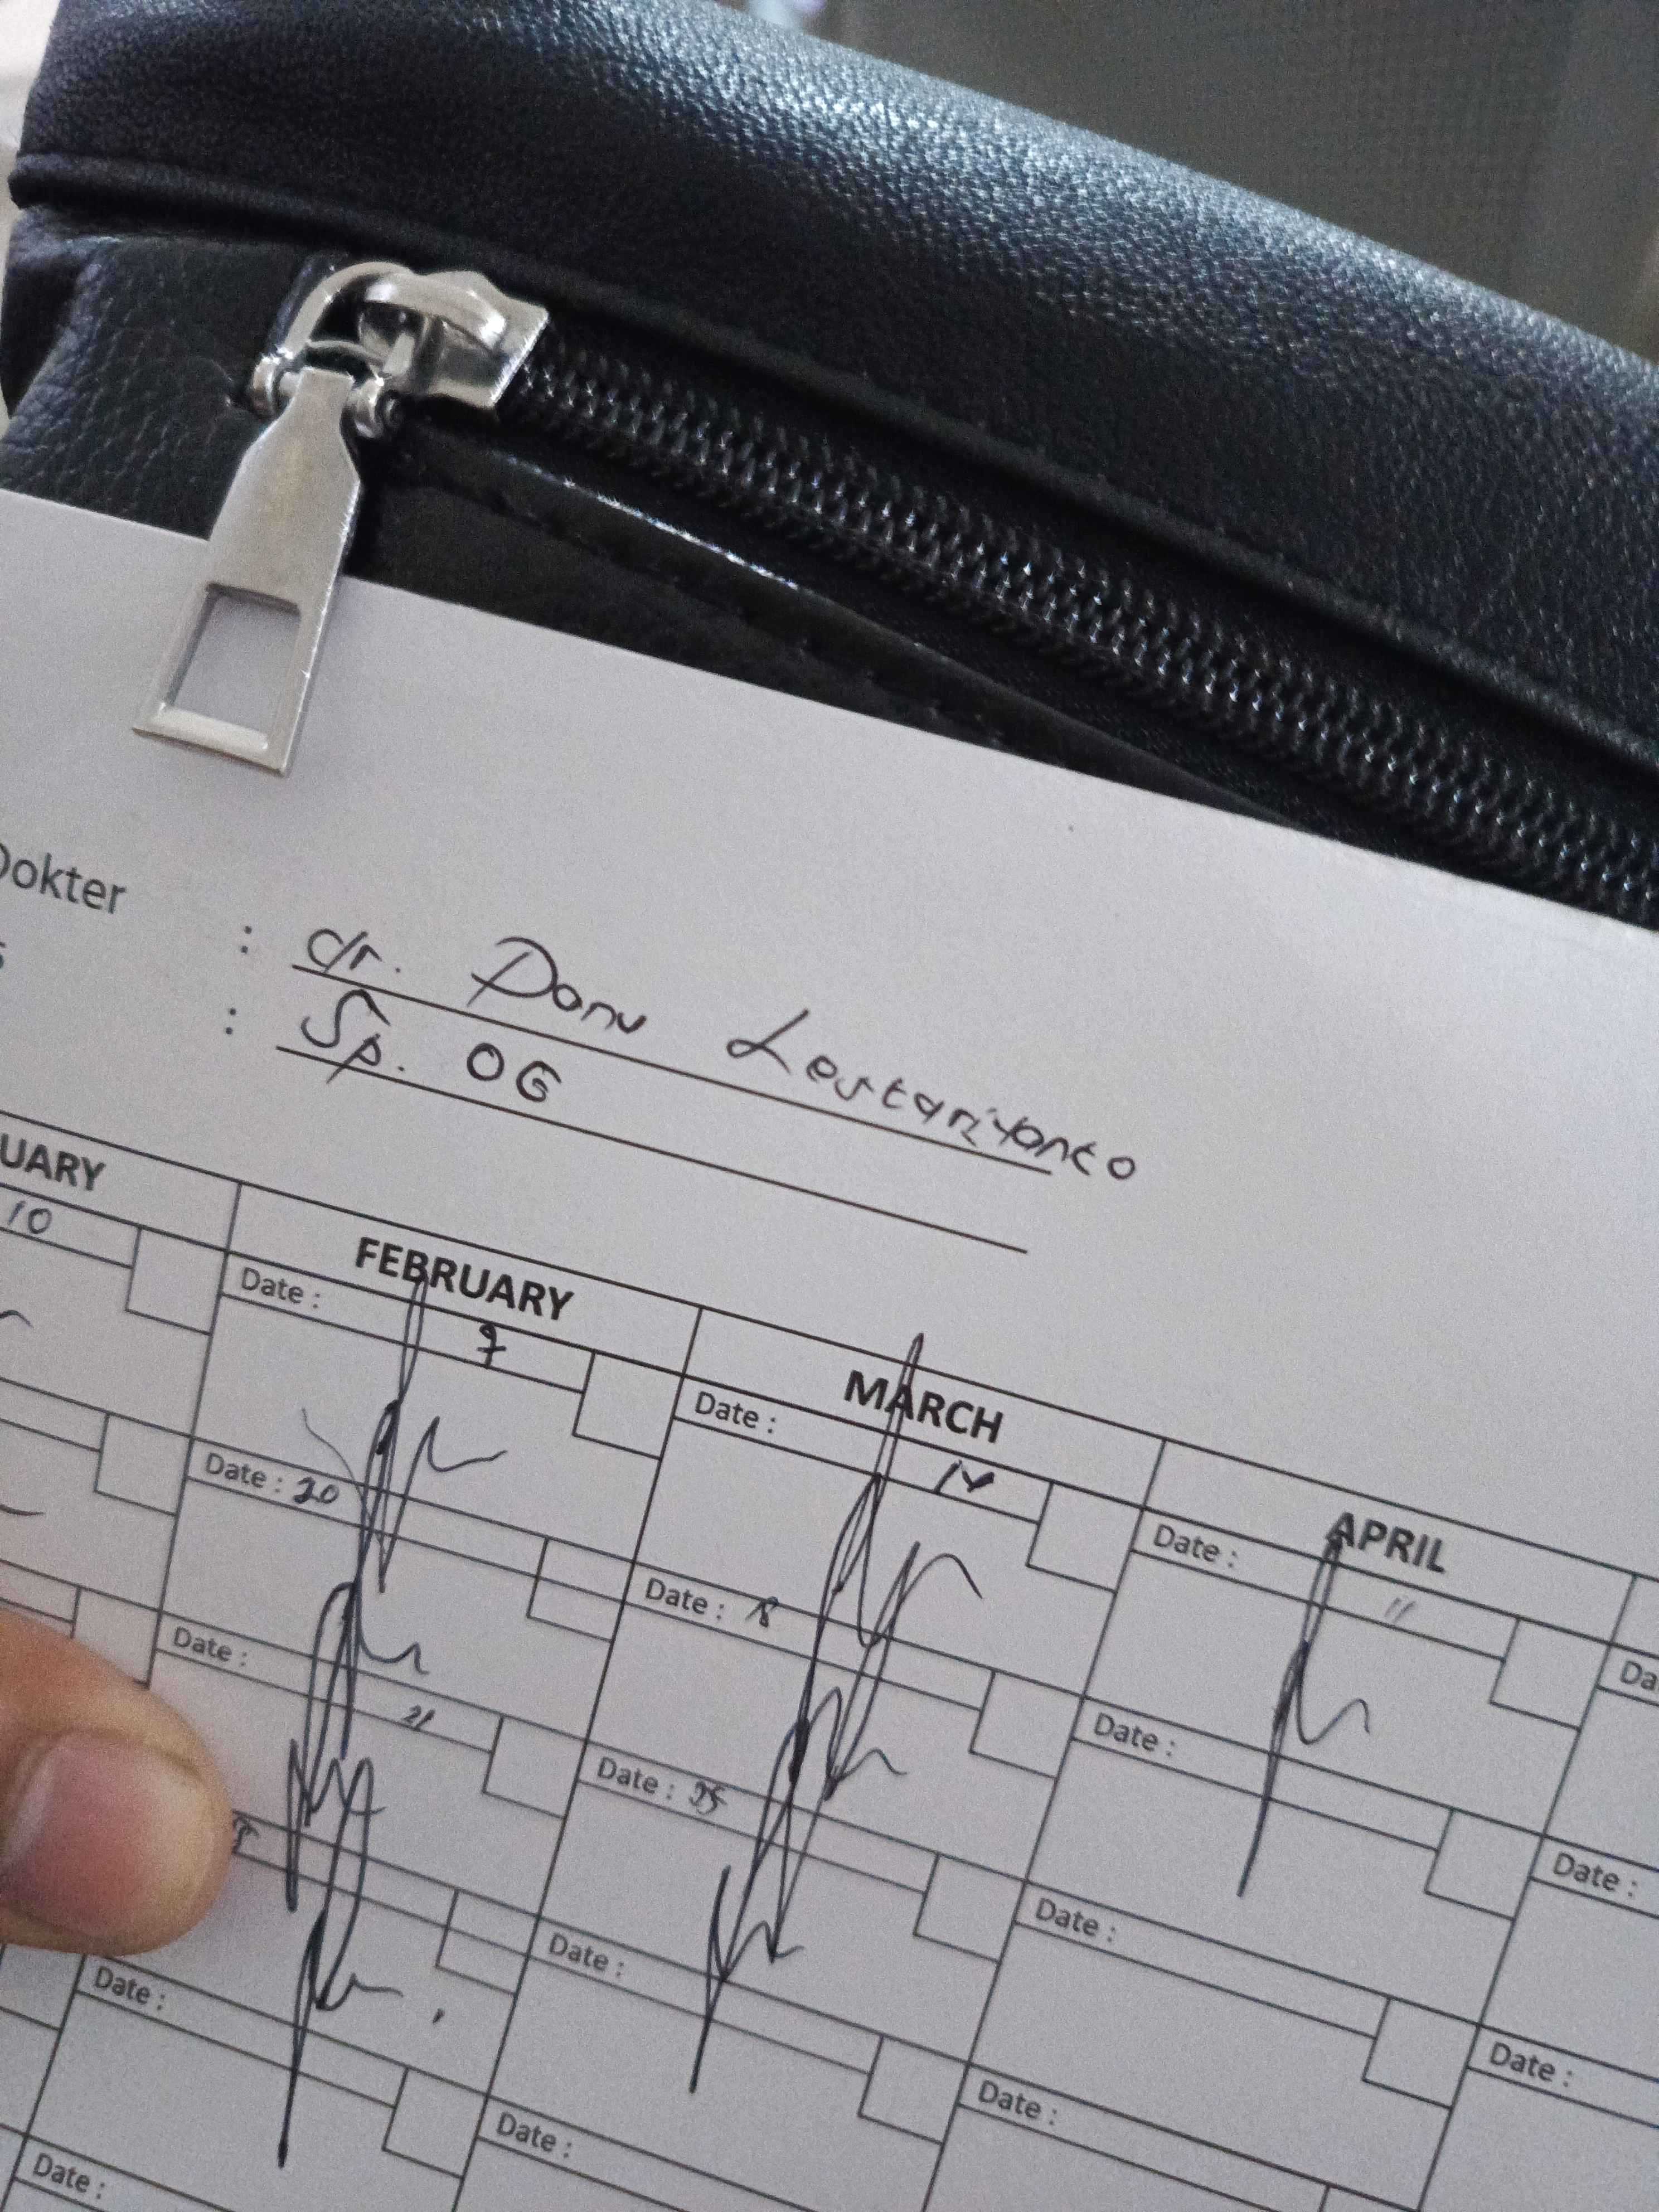 Dokter : dr. Danu Lestariyanto
: Sp. OG
UARY FEBRUARY MARCH APRIL
10
Date : 7
Date : 14
Date : 11
Date : 20
Date : 18
Date :
Date : 21
Date : 25
Date :
Date :
Date :
Date :
Date :
Date :
Date :
Date :
Date :